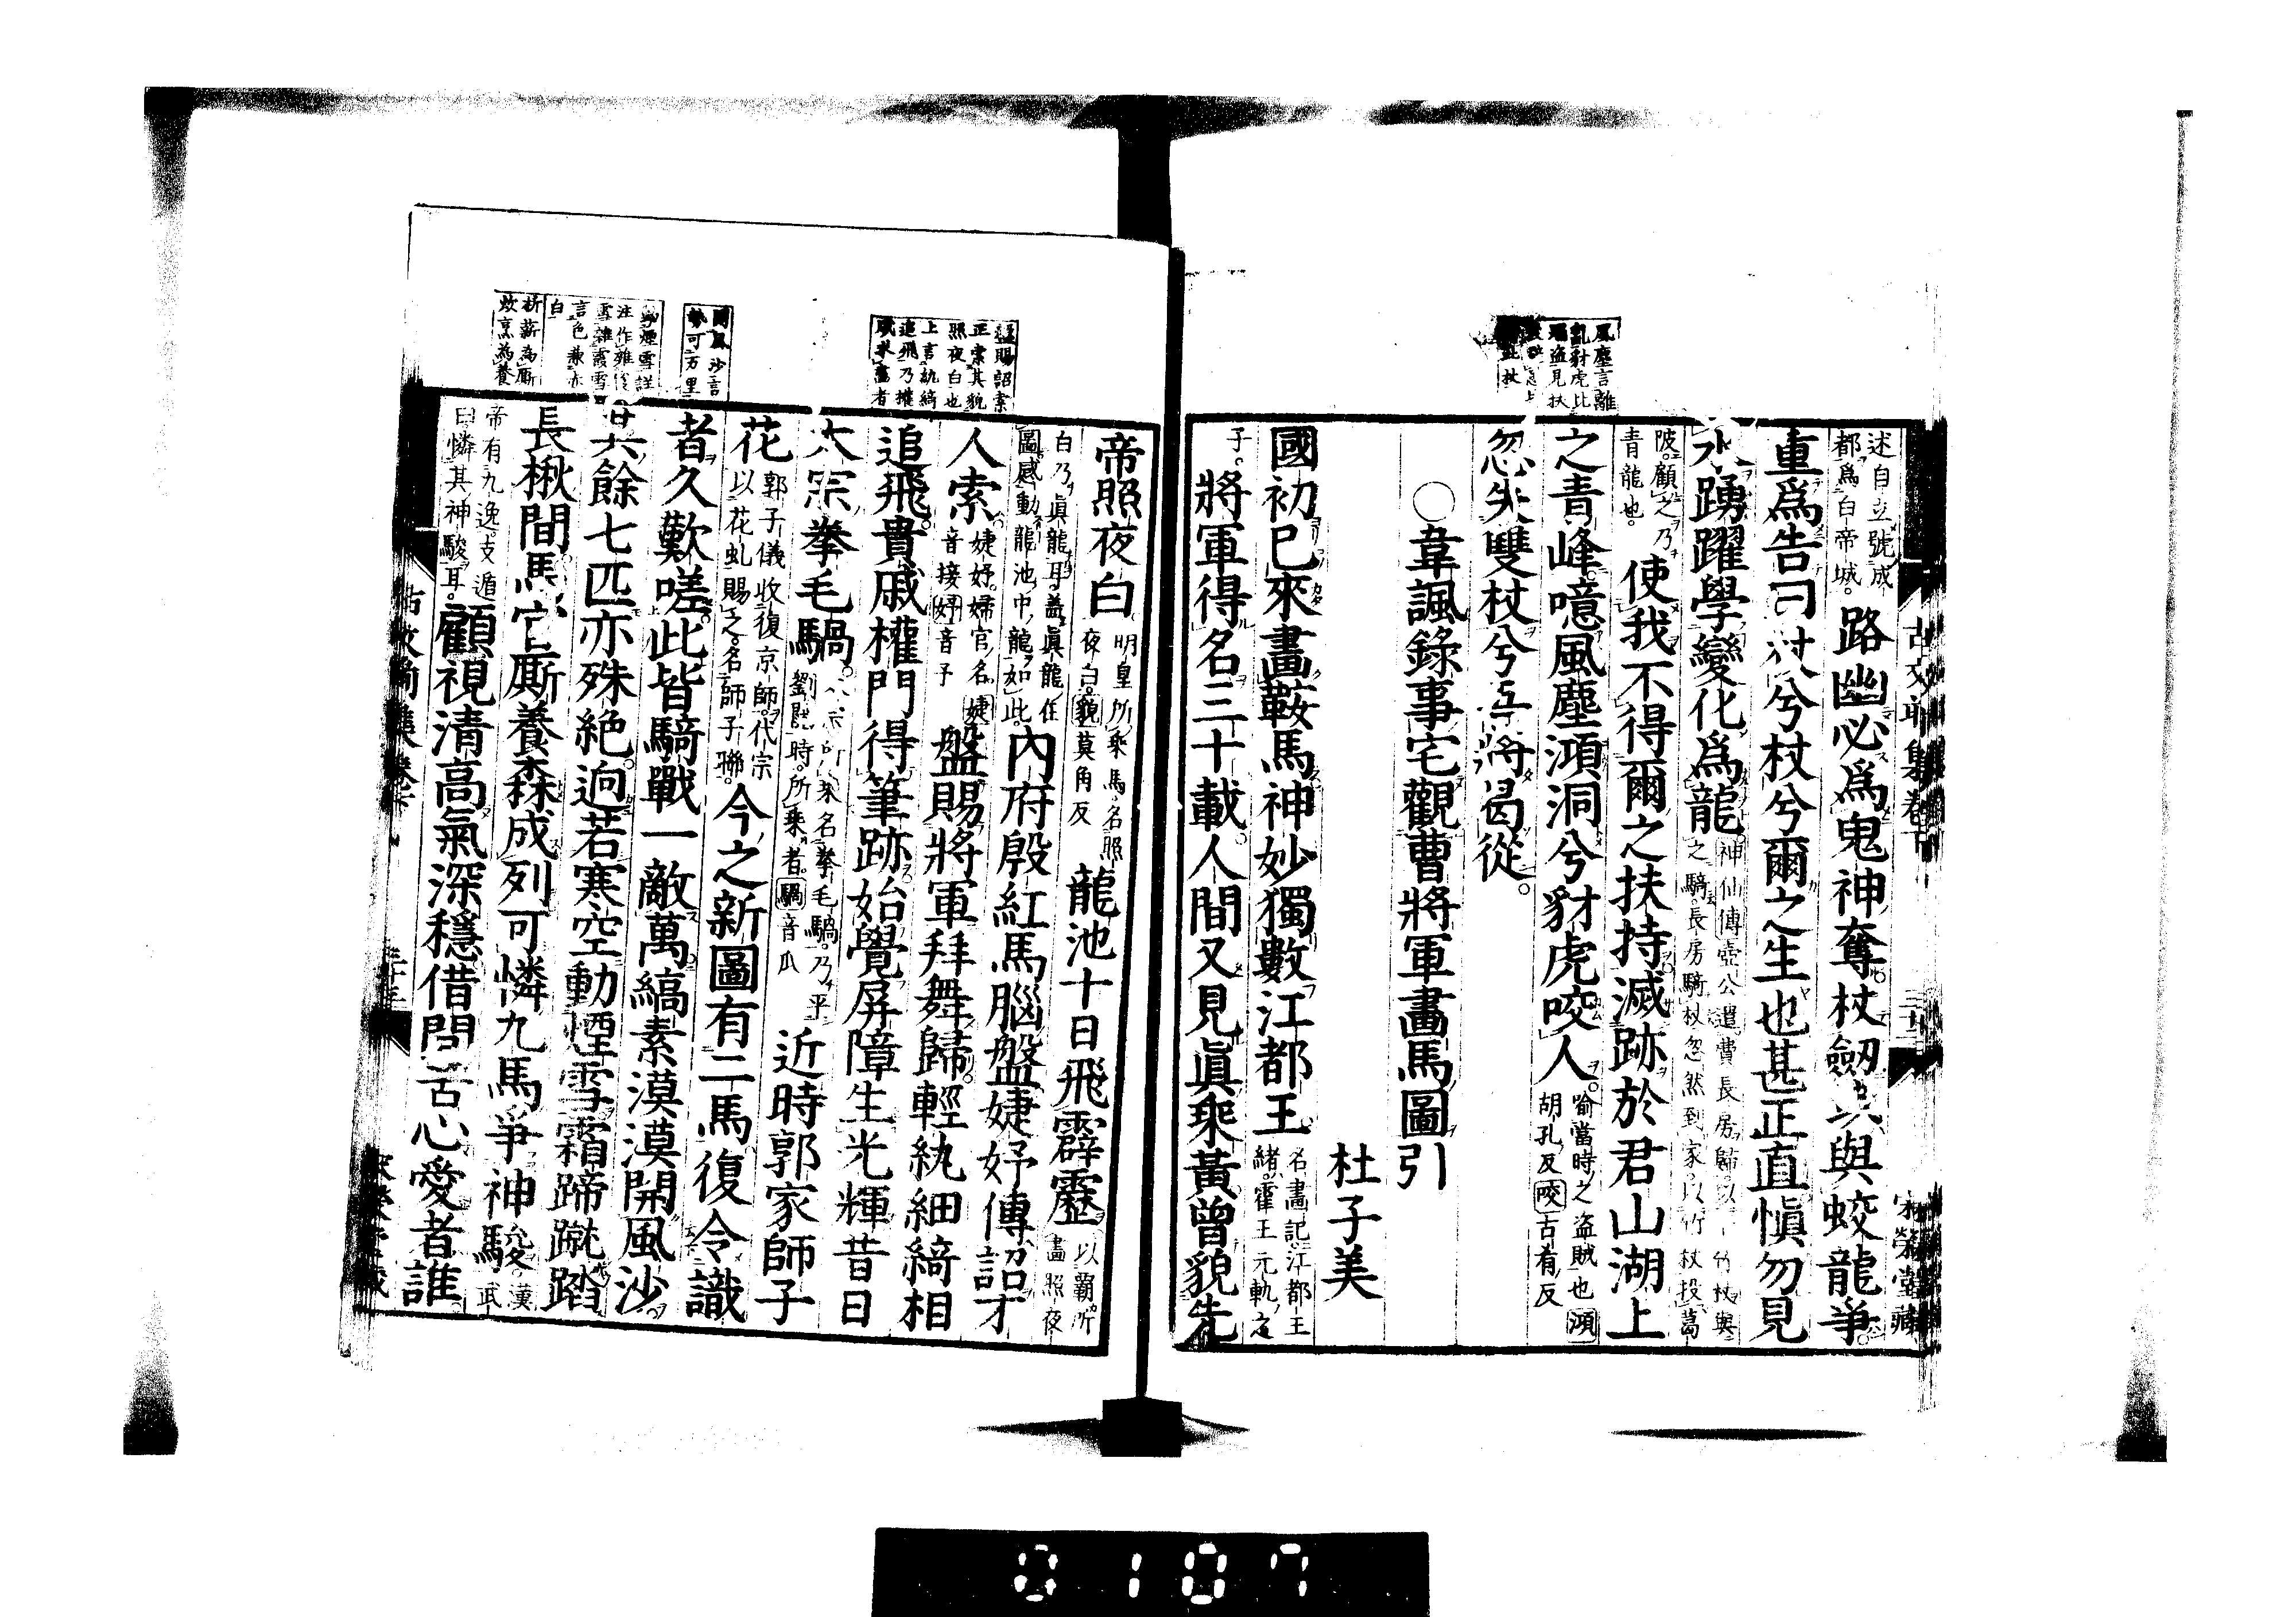 風塵言離
亂豺虎比
盜見扶
述自立號成
都爲白帝城。
路幽必爲鬼神奪杖劒與蛟龍爭
重爲告曰杖兮杖兮爾之生也甚正直愼勿見
水踴躍學變化爲龍
神仙傳壺公遣費長房歸以一竹杖與
之騎。長房騎杖忽然到家。以竹杖投葛
陂。顧之乃
青龍也。
使我不得爾之扶持滅跡於君山湖上
之青峰噫風塵澒洞兮豺虎咬人
喻當時之盜賊也澒
胡孔反咬古肴反
忽失雙杖兮吾將曷從。
○韋諷錄事宅觀曹將軍畫馬圖引
杜子美
國初已來畫鞍馬神妙獨數江都王
名畫記江都王
緒。霍王元軌之
子。
將軍得名三十載人間又見眞乘黃曾貌先
古文前集卷下
三十二
宋榮堂藏
盤賜詔索
正索其貌
照夜白也
上言紈綺
追飛乃權
戚求畫者
開風沙言
勢可万里
煙雪詳
注作雜
雪雜霜雪
言色兼赤
白
析薪為厮
炊烹為養
帝照夜白
明皇所乘馬名照
夜白。貌莫角反
龍池十日飛霹靂
以霸所
畫照夜
白乃眞龍耳盖眞龍在
圖感動龍池中龍如此。
內府殷紅馬腦盤婕妤傳詔才
人索
婕妤婦官名婕
音接妤音予
盤賜將軍拜舞歸輕紈細綺相
追飛。貴戚權門得筆跡始覺屏障生光輝昔日
太宗拳毛騧。
太宗所乘名拳毛騧。乃平
劉時所乘者。騧音瓜
近時郭家師子
花
郭子儀收復京師。代宗
以花虬賜之。名師子聯。
今之新圖有二馬復令識
者久歎嗟。此皆騎戰一敵萬縞素漠漠開風沙。
其餘七匹亦殊絶。逈若寒空動煙雪霜蹄蹴踏
長楸間馬官厮養森成列可憐九馬爭神駿
漢武
帝有九逸。支遁
曰。憐其神駿耳。
顧視清高氣深穩借問苦心愛者誰